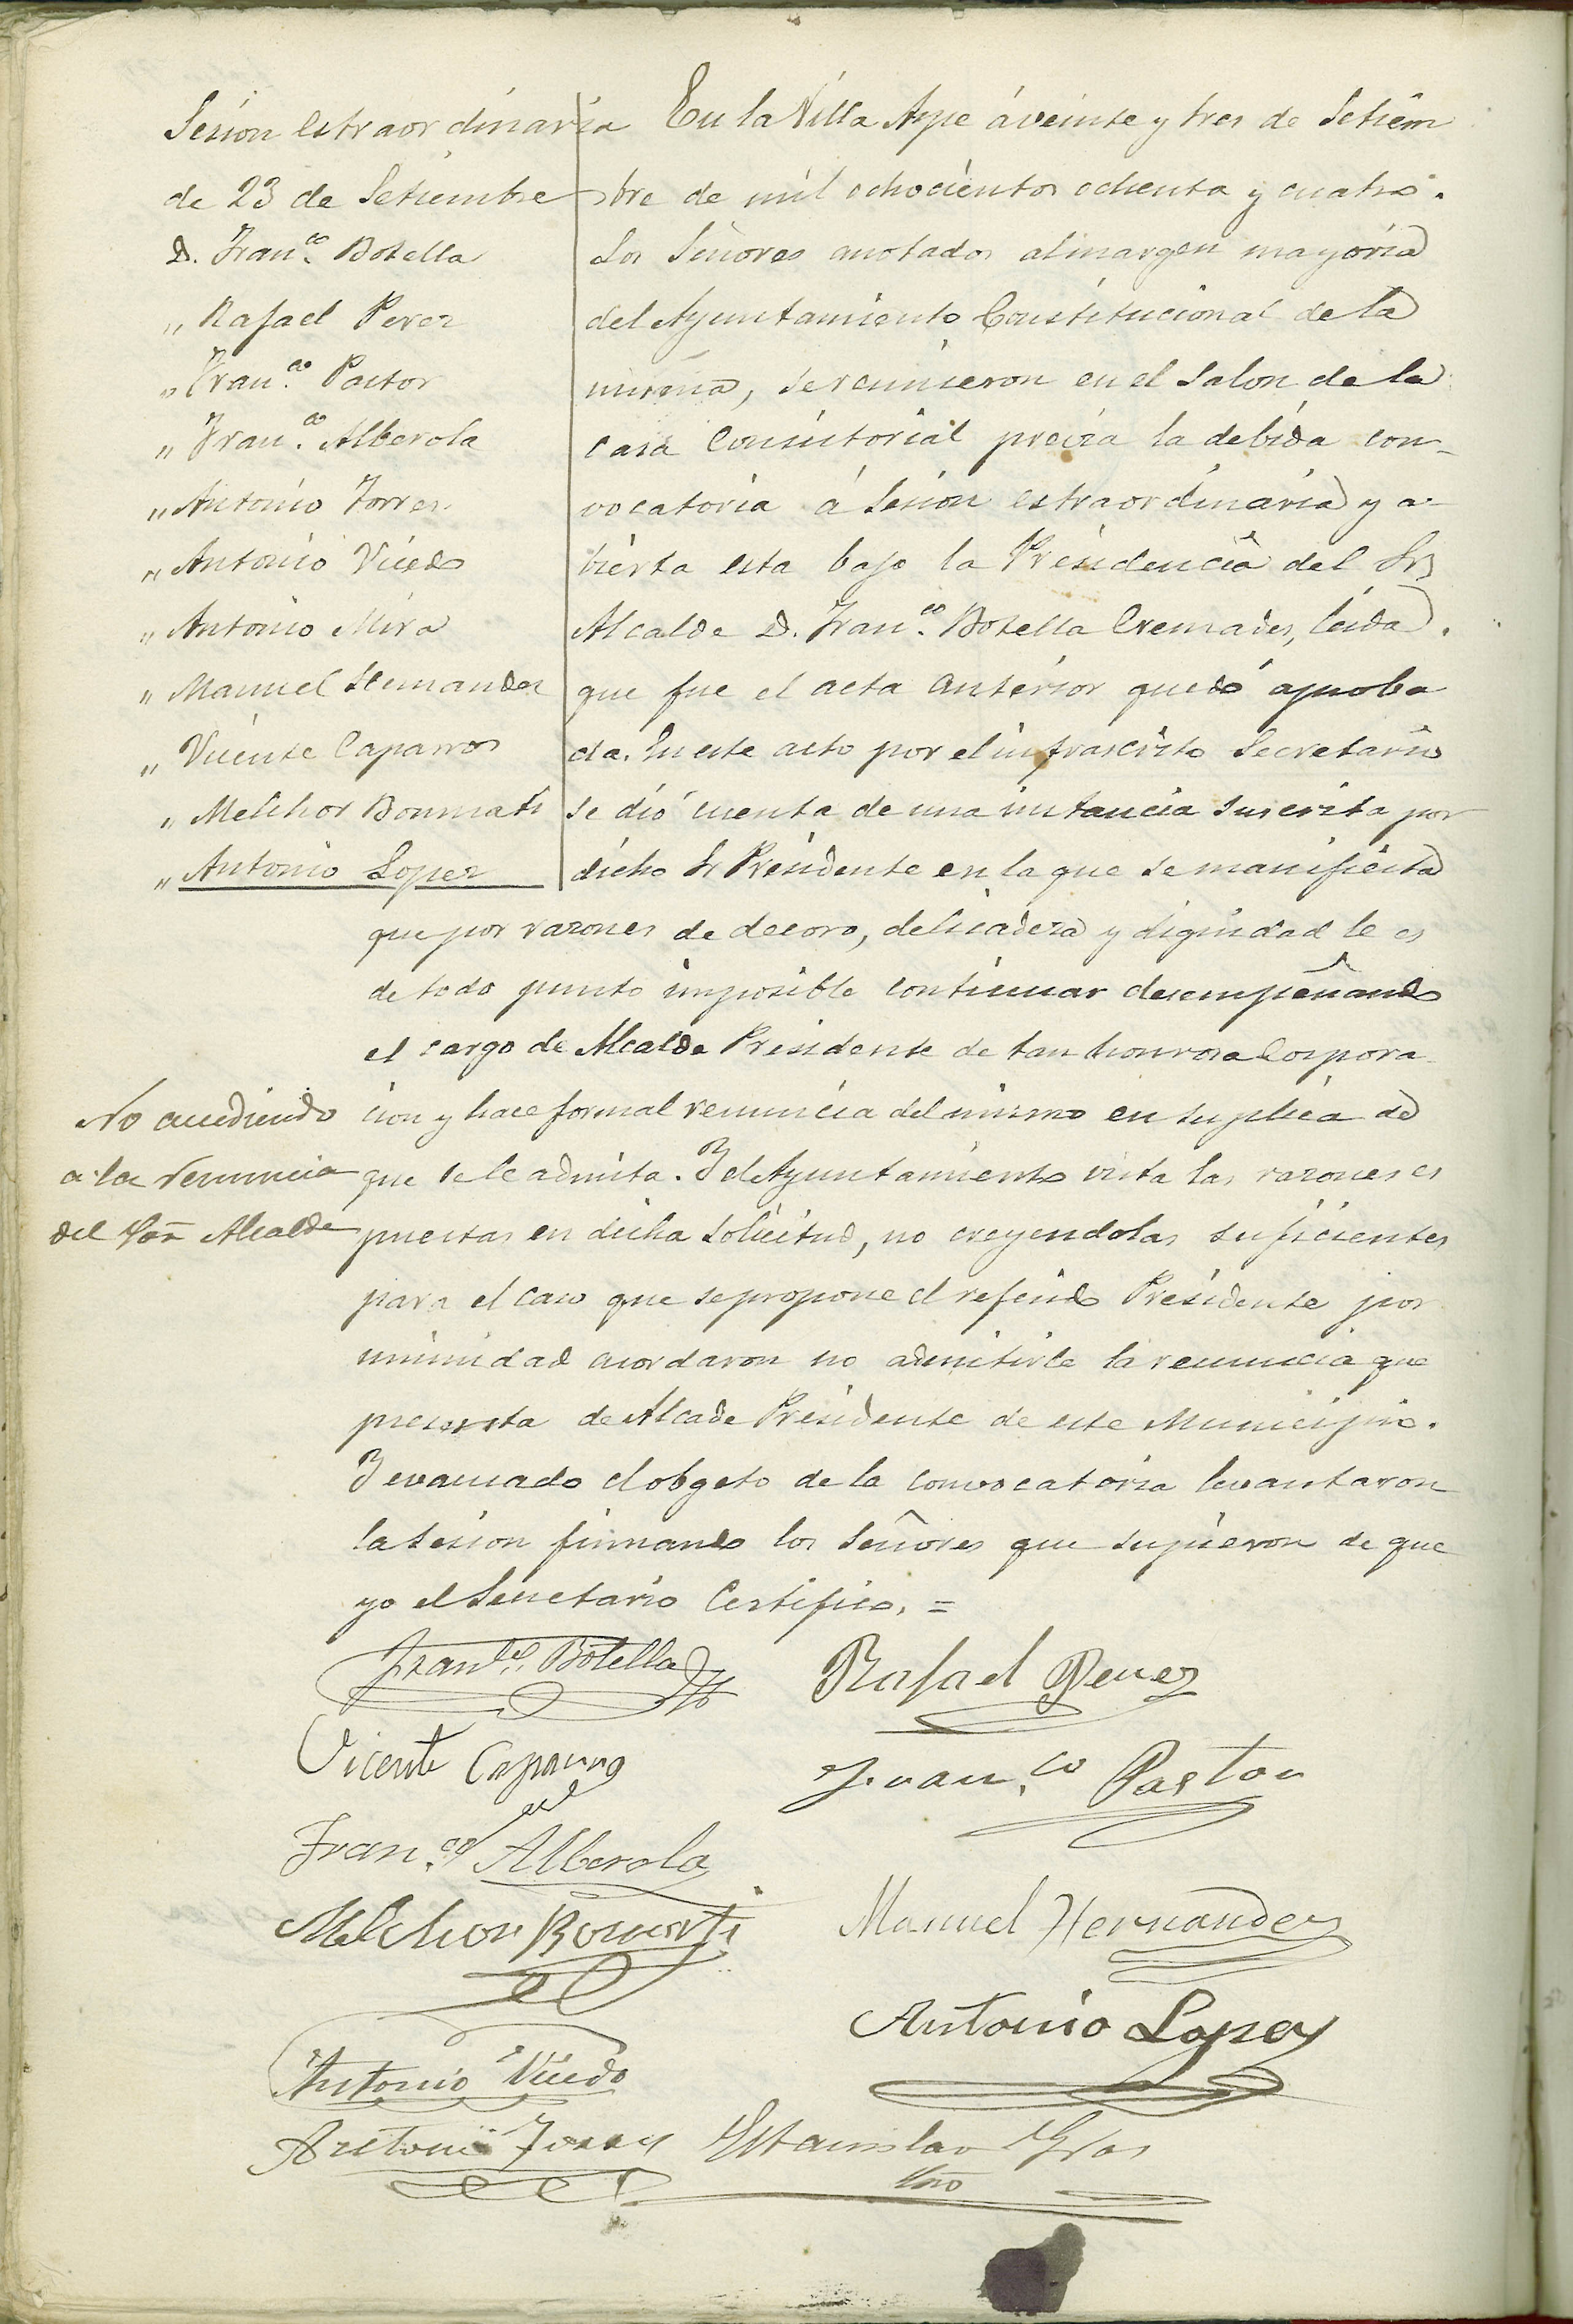 Sesion estraordinaria
de 23 de Setiembre
D. Fran.co Botella
" Rafael Perez
" Fran.co Pastor
" Fran.co Alberola
" Antonio Torres
" Antonio Vicedo
" Antonio Mira
" Manuel Hernandez
" Vicente Caparros
" Melchor Bonmati
" Antonio Lopez
En la Villa Aspe á veinte y tres de Setiem
bre de mil ochocientos ochenta y cuatro.
Los Señores anotados al margen mayoria
del Ayuntamiento Constitucional de la
misma, se reunieron en el Salon de la
casa Consistorial previa la debida con-
vocatoria á Sesion estraordinaria y a-
bierta esta bajo la Presidencia del Sr
Alcalde D. Fran.co Botella Cremades, leida
que fue el acta anterior quedó aproba
da. En este acto por el infrascrito Secretario
se dió cuenta de una instancia suscrita por
dicho Sr Presidente en la que se manifiesta
que por razones de decoro, delicadeza y dignidad le es
de todo punto imposible continuar desempeñando
el cargo de Alcalde Presidente de tan honrosa Corpora
cion y hace formal renuncia del mismo en suplica de
que se le admita. Y el Ayuntamiento vista las razones es
puestas en dicha solicitud, no creyendolas suficientes
para el caso que se propone el referido Presidente por
unimidad acordaron no admitirle la renuncia que
presenta de Alcade Presidente de este Municipio.
Y evacuado el obgeto de la convocatoria levantaron
la sesion firmando los Señores que supieron de que
yo el Secretario Certifico. =
No accediendo
a la renuncia
del Sor Alcalde
Fran.co Botella
Rafael Perez
Vicente Caparros
Fran.co Pastor
Fran.co Alberola
Melchor Bonmati
Manuel Hernandez
Antonio Lopez
Antonio Vicedo
Antonio Torres
Estanislao Gras
Srio